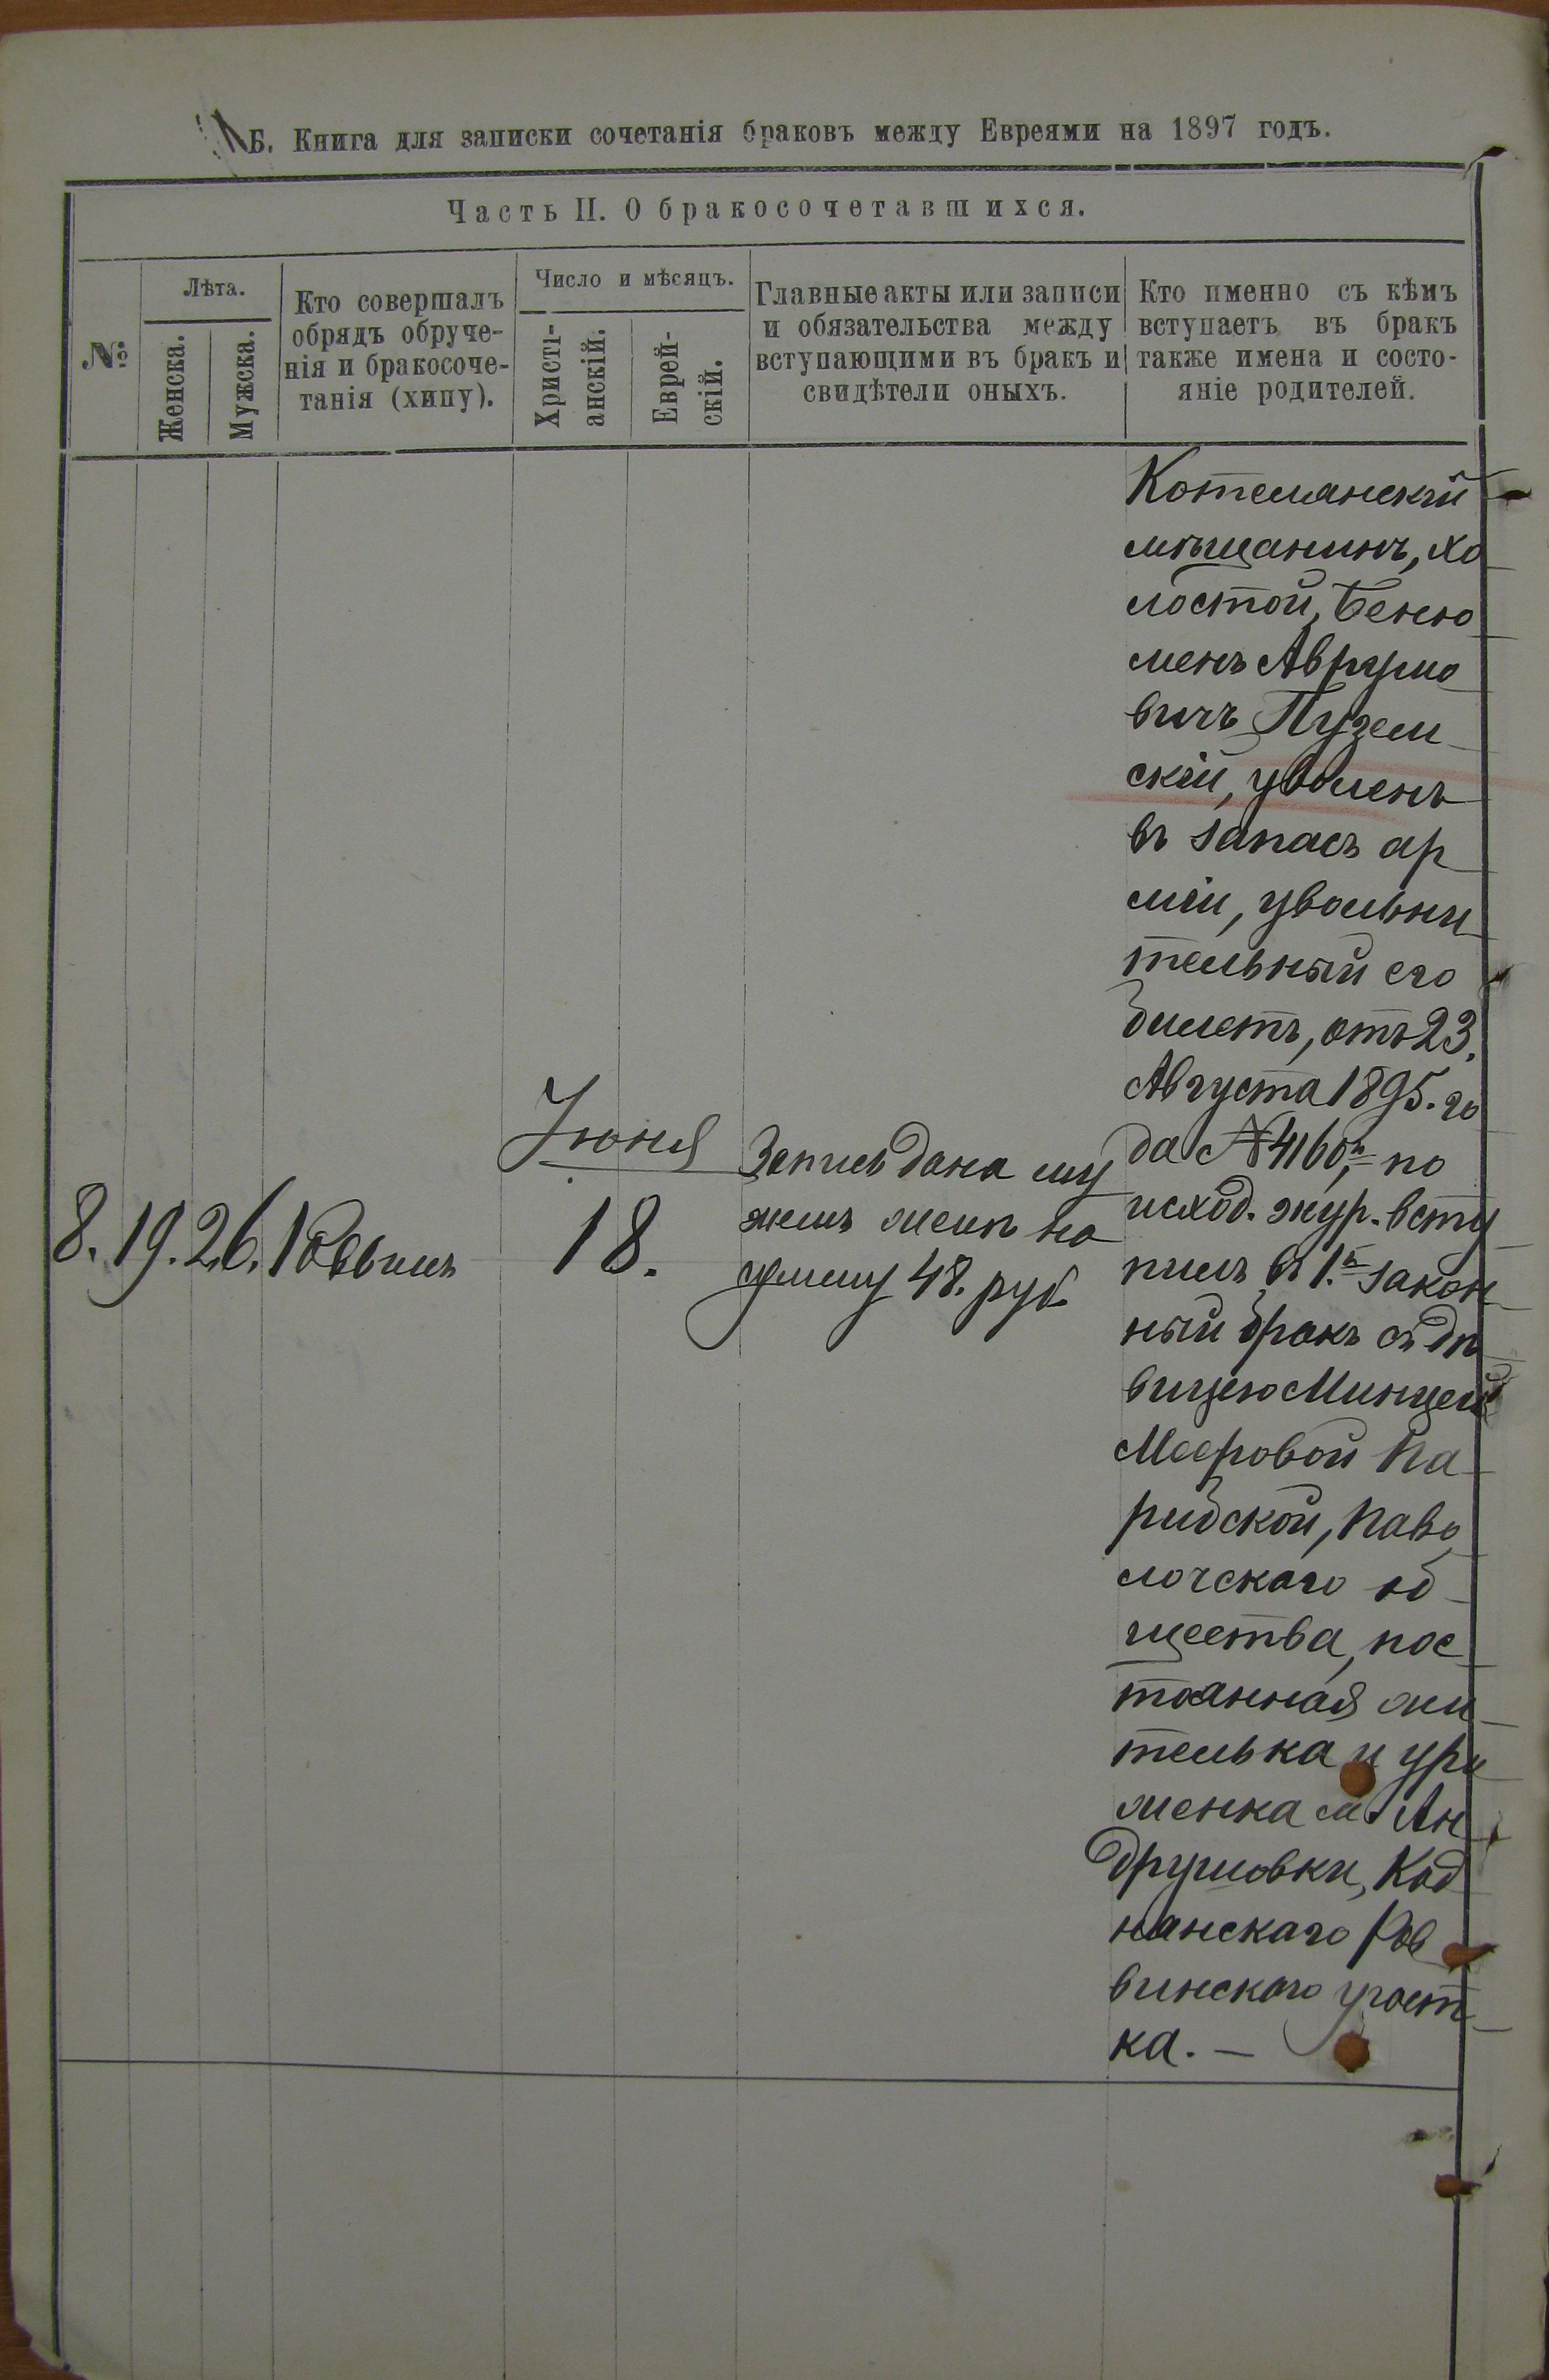 Б. Книга для записки сочетанія браковъ между Евреями на 1897 годъ.
Часть II. О бракосочетавшихся.
№
Лѣта.
Женска.
Мужска.
Кто совершалъ
обрядъ обруче-
нія и бракосоче-
танія (хипу).
Число и мѣсяцъ.
Христі-
анскій.
Еврей-
скій.
Главные акты или записи
и обязательства между
вступающими въ бракъ и
свидѣтели оныхъ.
Кто именно съ кѣмъ
вступаетъ въ бракъ
также имена и состо-
яніе родителей.
8. 19. 26. Раввинъ
Іюня
18.
Запись дана му
жемъ женѣ на
сумму 48. руб.
Котелянскій
мѣщанинъ, хо
лостой, Беню
менъ Аврумо
вичъ Пузем
скій, уволенъ
въ запасъ ар
міи, увольни
тельный его
билетъ, отъ 23.
Августа 1895. го
да № 4160, по
исход. жур. всту
пилъ въ 1.й закон
ный бракъ съ дѣ
вицею Минцей
Мееровой Па
рибской, Паво
лочского об
щества, пос
тоянная жи
телька и уро
женка м. Ан
друшовки, Код
нянскаго Рав
винскаго участ
ка. —